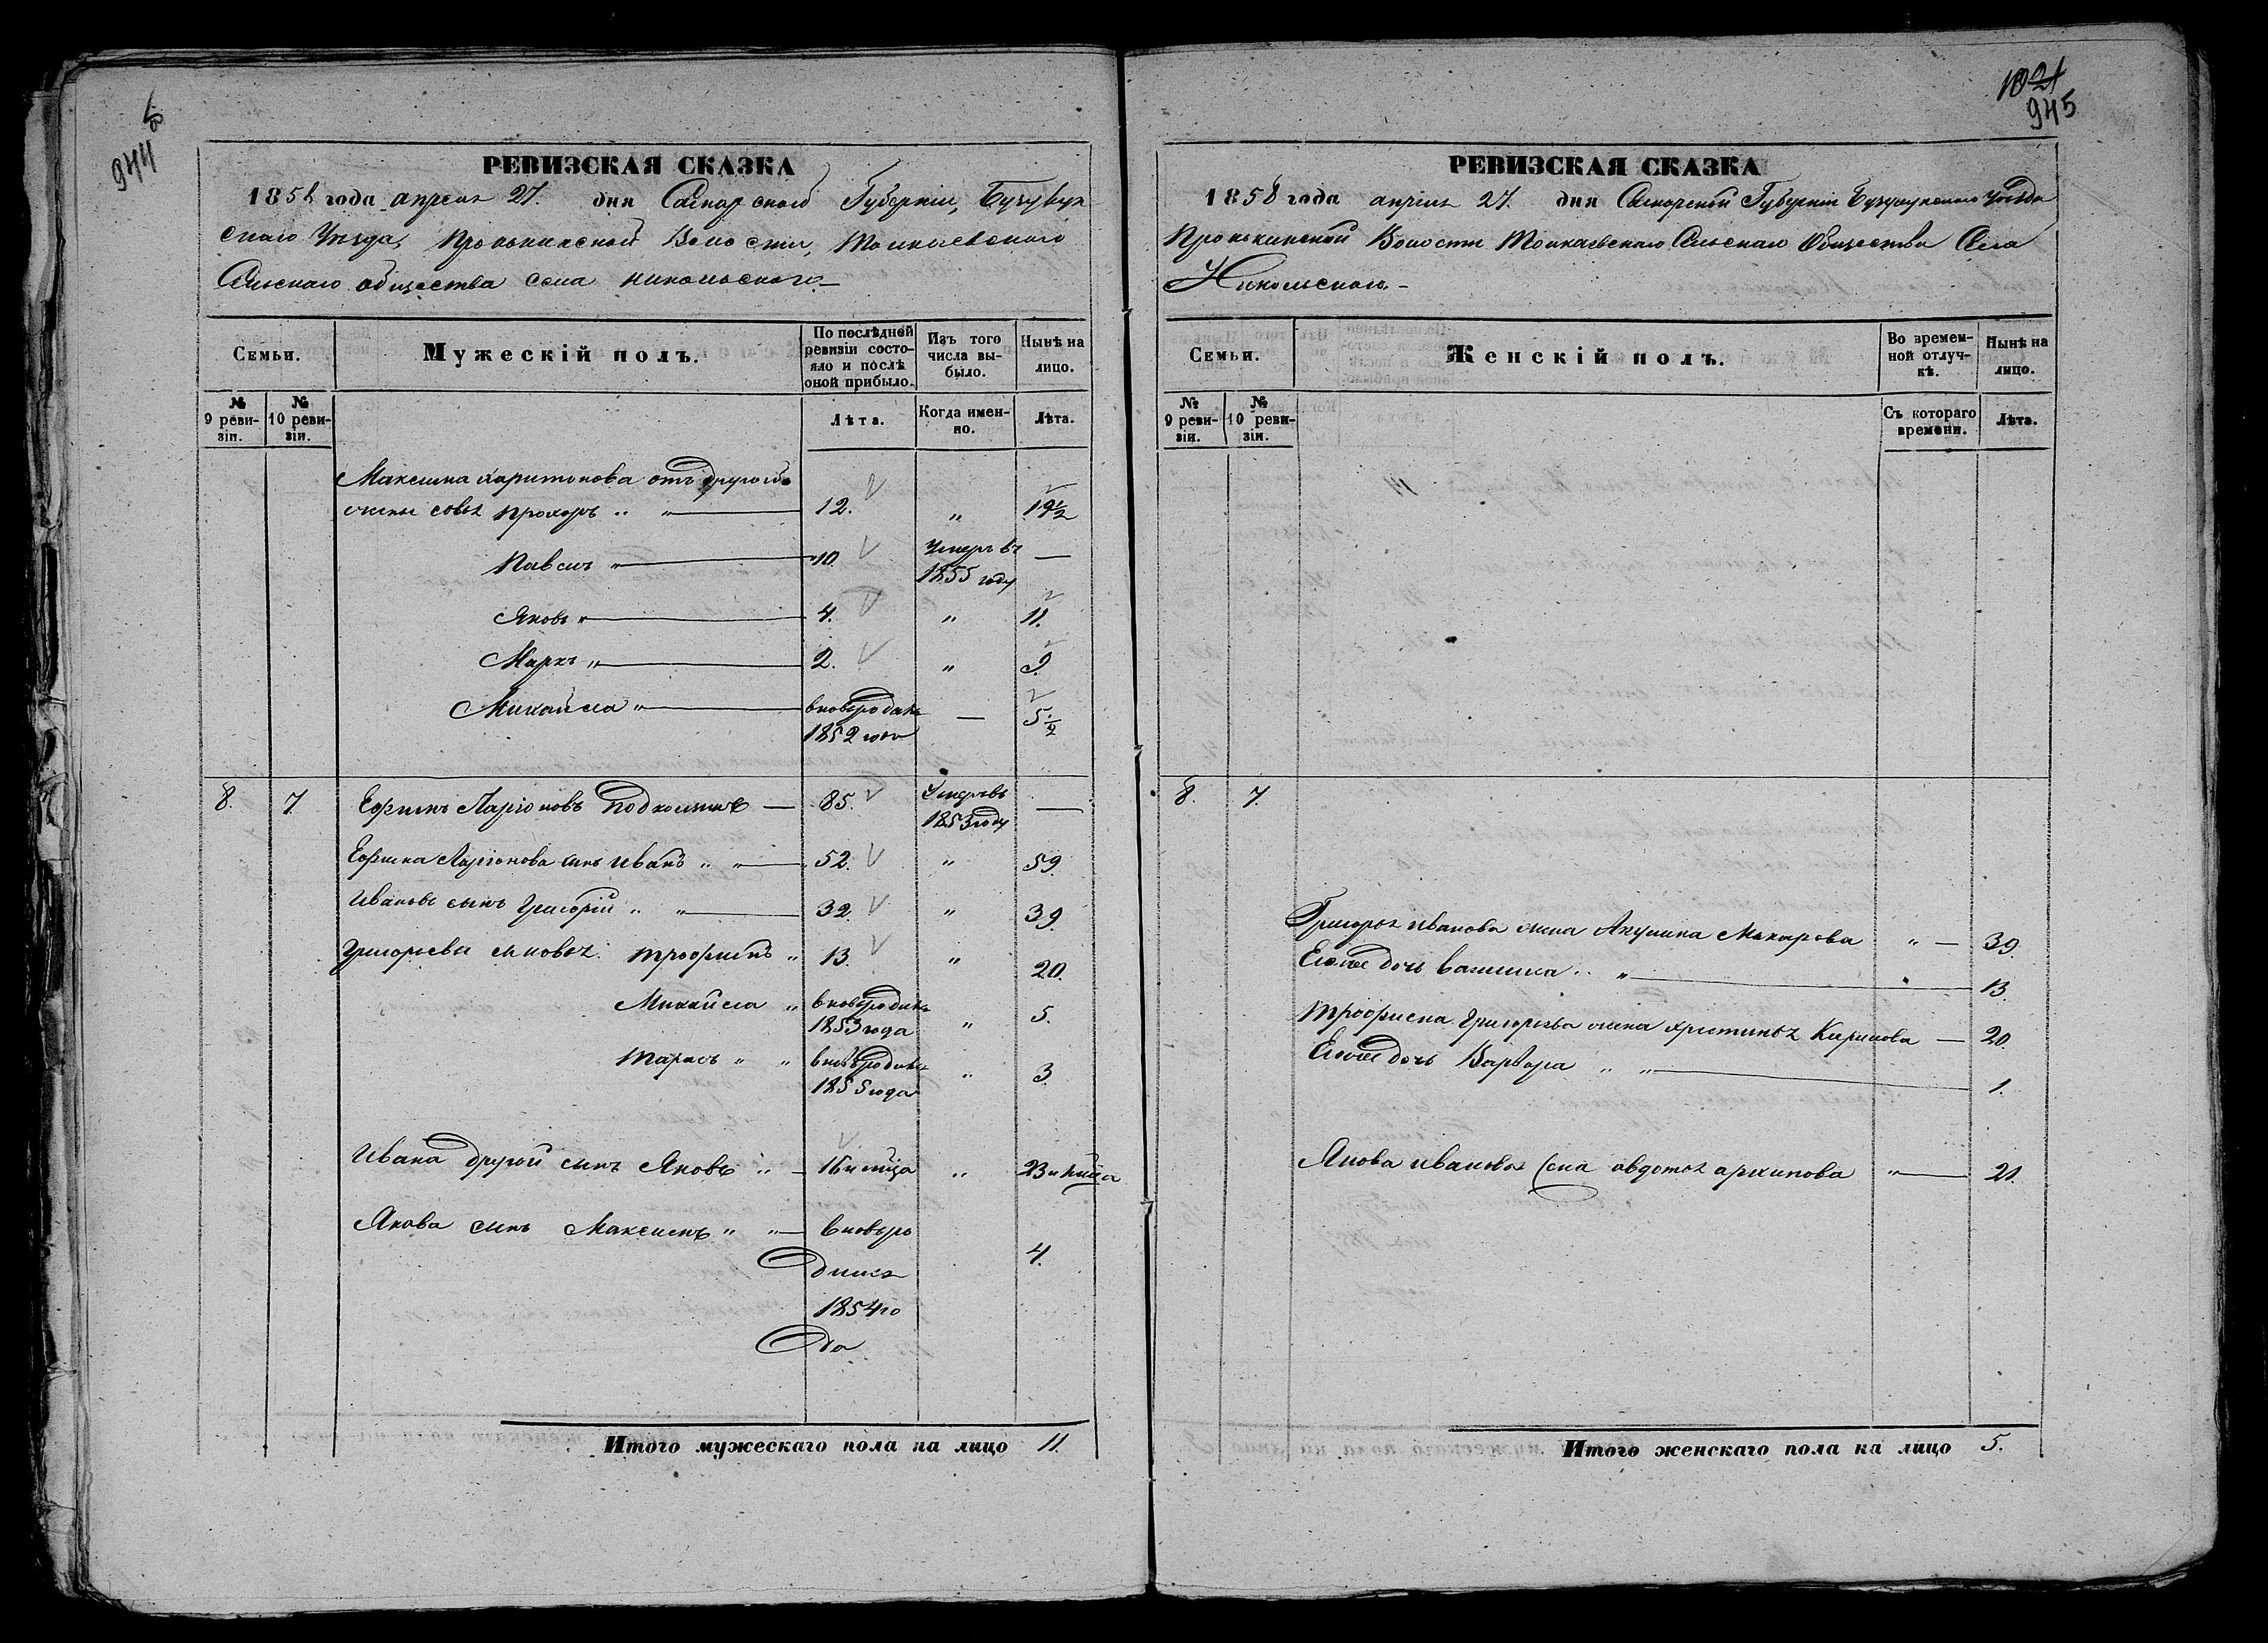 944
РЕВИЗСКАЯ СКАЗКА
1858 года апреля 27. дня Самарской Губернiи, Бузулук
скаго Уѣзда, Волости, Толкаевскаго
Сельскаго общества села никольского
Семьи.
Мужескiй полъ.
По послѣдней ревизiи состояло и послѣ оной прибыло.
Изъ того числа выбыло.
Нынѣ на лицо.
№ 9 ревизiи.
№ 10 ревизiи.
Лѣта.
Когда именно.
Лѣта.
Максима Харитонова отъ другой
жены Прохоръ „ „ 12. „ 19½
Павелъ „ 10. Умеръ въ 1855 году —
Яковъ „ 4. „ 11.
Маркъ „ 2. „ 9.
Михайла „ вновьрожденъ 1852 года — 5½
8. 7. Ефимъ Ларiоновъ — 85. Умеръ въ 1853 году —
Ефима Ларiонова сынъ Иванъ „ „ 52. „ 59.
Ивановъ сынъ Григорiй „ „ 32. „ 39.
Григорьева сыновья: Трофимъ „ 13. „ 20.
Михайла „ 1853 года „ 5.
Тарасъ „ „ 1855 года „ 3.
Ивана другой сынъ Яковъ „ — 16 „ 23
Якова сынъ Максимъ „ „ — вновьро
дился
1854 го
да
4.
Итого мужескаго пола на лицо 11.
1021
945
РЕВИЗСКАЯ СКАЗКА
1858 года апреля 27. дня Самарской Губернiи Бузулукскаго Уѣзда
Волости Толкаевскаго Сельскаго Общества Села
Никольскаго. –
Семьи.
Женскiй полъ.
Во временной отлучкѣ.
Нынѣ на лицо.
№ 9 ревизiи.
№ 10 ревизiи.
Съ котораго времени.
Лѣта.
8. 7.
Григорья Иванова жена Акулина Макарова „ — 39.
дочь Василиса „ „ 13.
Трофима Григорьева жена Христинья Кирилова — 20.
дочь Варвара „ „ 1.
Якова Иванова жена авдотья архипова „ 21.
Итого женскаго пола на лицо 5.